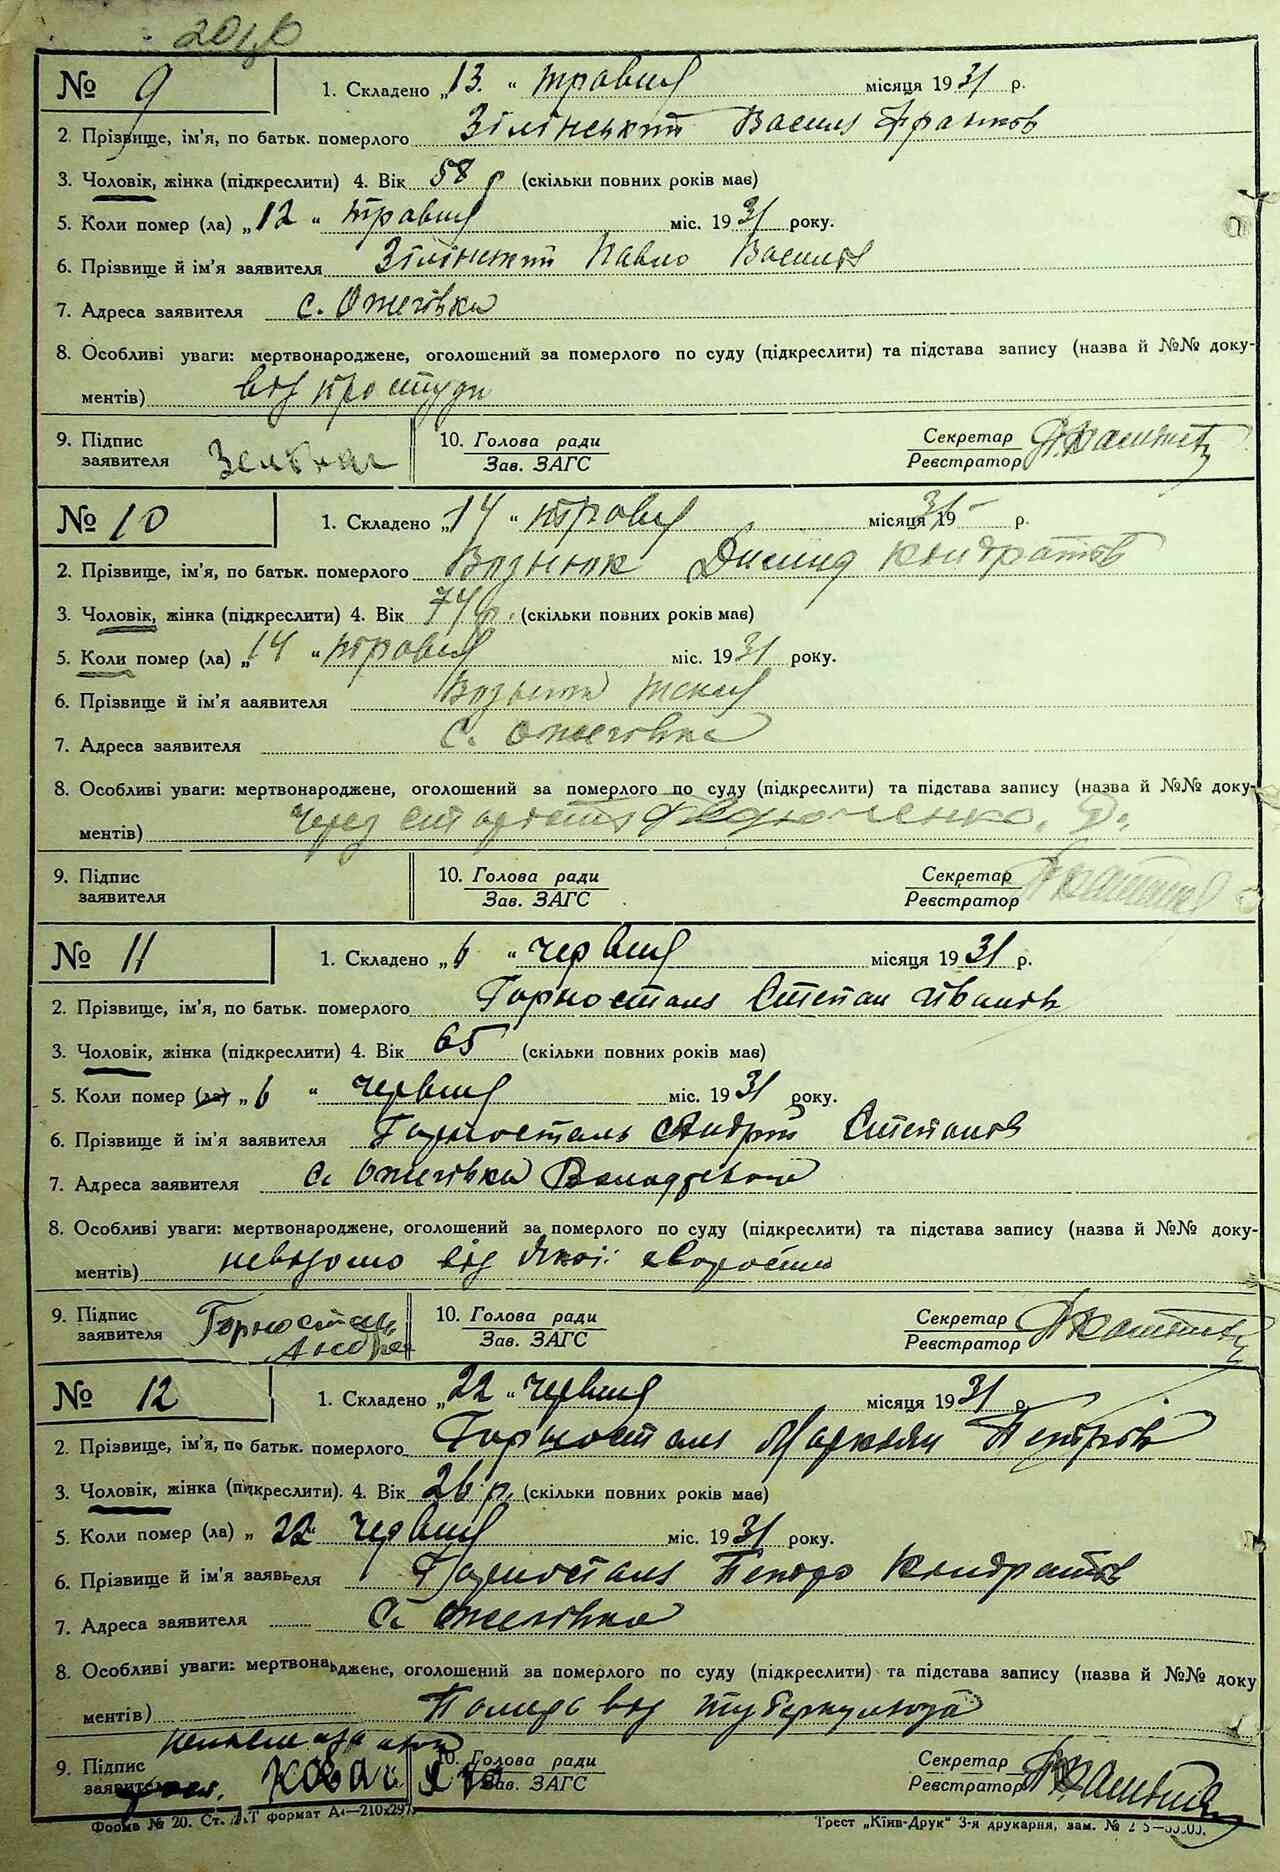 № 9
1. Складено „13. “ травня місяця 1931 р.
2. Прізвище, ім’я, по батьк. померлого Зілінський Василь Франков
3. Чоловік, жінка (підкреслити) 4. Вік 58 р (скільки повних років має)
5. Коли помер (ла) „12 “ травня міс. 1931 року.
6. Прізвище й ім’я заявителя Зілінский Павло Васильов
7. Адреса заявителя с. Ожегівка
8. Особливі уваги: мертвонароджене, оголошений за померлого по суду (підкреслити) та підстава запису (назва й №№ доку-
ментів) від простуди
9. Підпис заявителя
10. Голова ради
Зав. ЗАГС
Секретар
Реєстратор
№ 10
1. Складено „14 “ травня місяця 1931 р.
2. Прізвище, ім’я, по батьк. померлого Вознюк Кондратов
3. Чоловік, жінка (підкреслити) 4. Вік 74 р. (скільки повних років має)
5. Коли помер (ла) „14 “ травня міс. 1931 року.
6. Прізвище й ім’я заявителя
7. Адреса заявителя с. Ожегівка
8. Особливі уваги: мертвонароджене, оголошений за померлого по суду (підкреслити) та підстава запису (назва й №№ доку-
ментів) Через старість
9. Підпис заявителя
10. Голова ради
Зав. ЗАГС
Секретар
Реєстратор
№ 11
1. Складено „6 “ червня місяця 1931 р.
2. Прізвище, ім’я, по батьк. померлого Горносталь Степан Іванов
3. Чоловік, жінка (підкреслити) 4. Вік 65 (скільки повних років має)
5. Коли помер (ла) „6 “ червня міс. 1931 року.
6. Прізвище й ім’я заявителя Горносталь Андрій Степанов
7. Адреса заявителя с. Ожегівка
8. Особливі уваги: мертвонароджене, оголошений за померлого по суду (підкреслити) та підстава запису (назва й №№ доку-
ментів) невідомо від якої хворости
9. Підпис заявителя Горносталь
Андрей
10. Голова ради
Зав. ЗАГС
Секретар
Реєстратор
№ 12
1. Складено „22 “ червня місяця 1931 р.
2. Прізвище, ім’я, по батьк. померлого Горносталь Маркіян Петрів
3. Чоловік, жінка (підкреслити). 4. Вік 26 р. (скільки повних років має)
5. Коли помер (ла) „ 22 “ червня міс. 1931 року.
6. Прізвище й ім’я заявителя Горносталь Петро Кондратов
7. Адреса заявителя с. Ожегівка
8. Особливі уваги: мертвонароджене, оголошений за померлого по суду (підкреслити) та підстава запису (назва й №№ доку
ментів) Помер від туберкульоза
9. Підпис заявителя
10. Голова ради
Зав. ЗАГС
Секретар
Реєстратор
Форма № 20. Ст. формат А4—210х297
Трест „Київ-Друк“ 3-я друкарня, зам. №